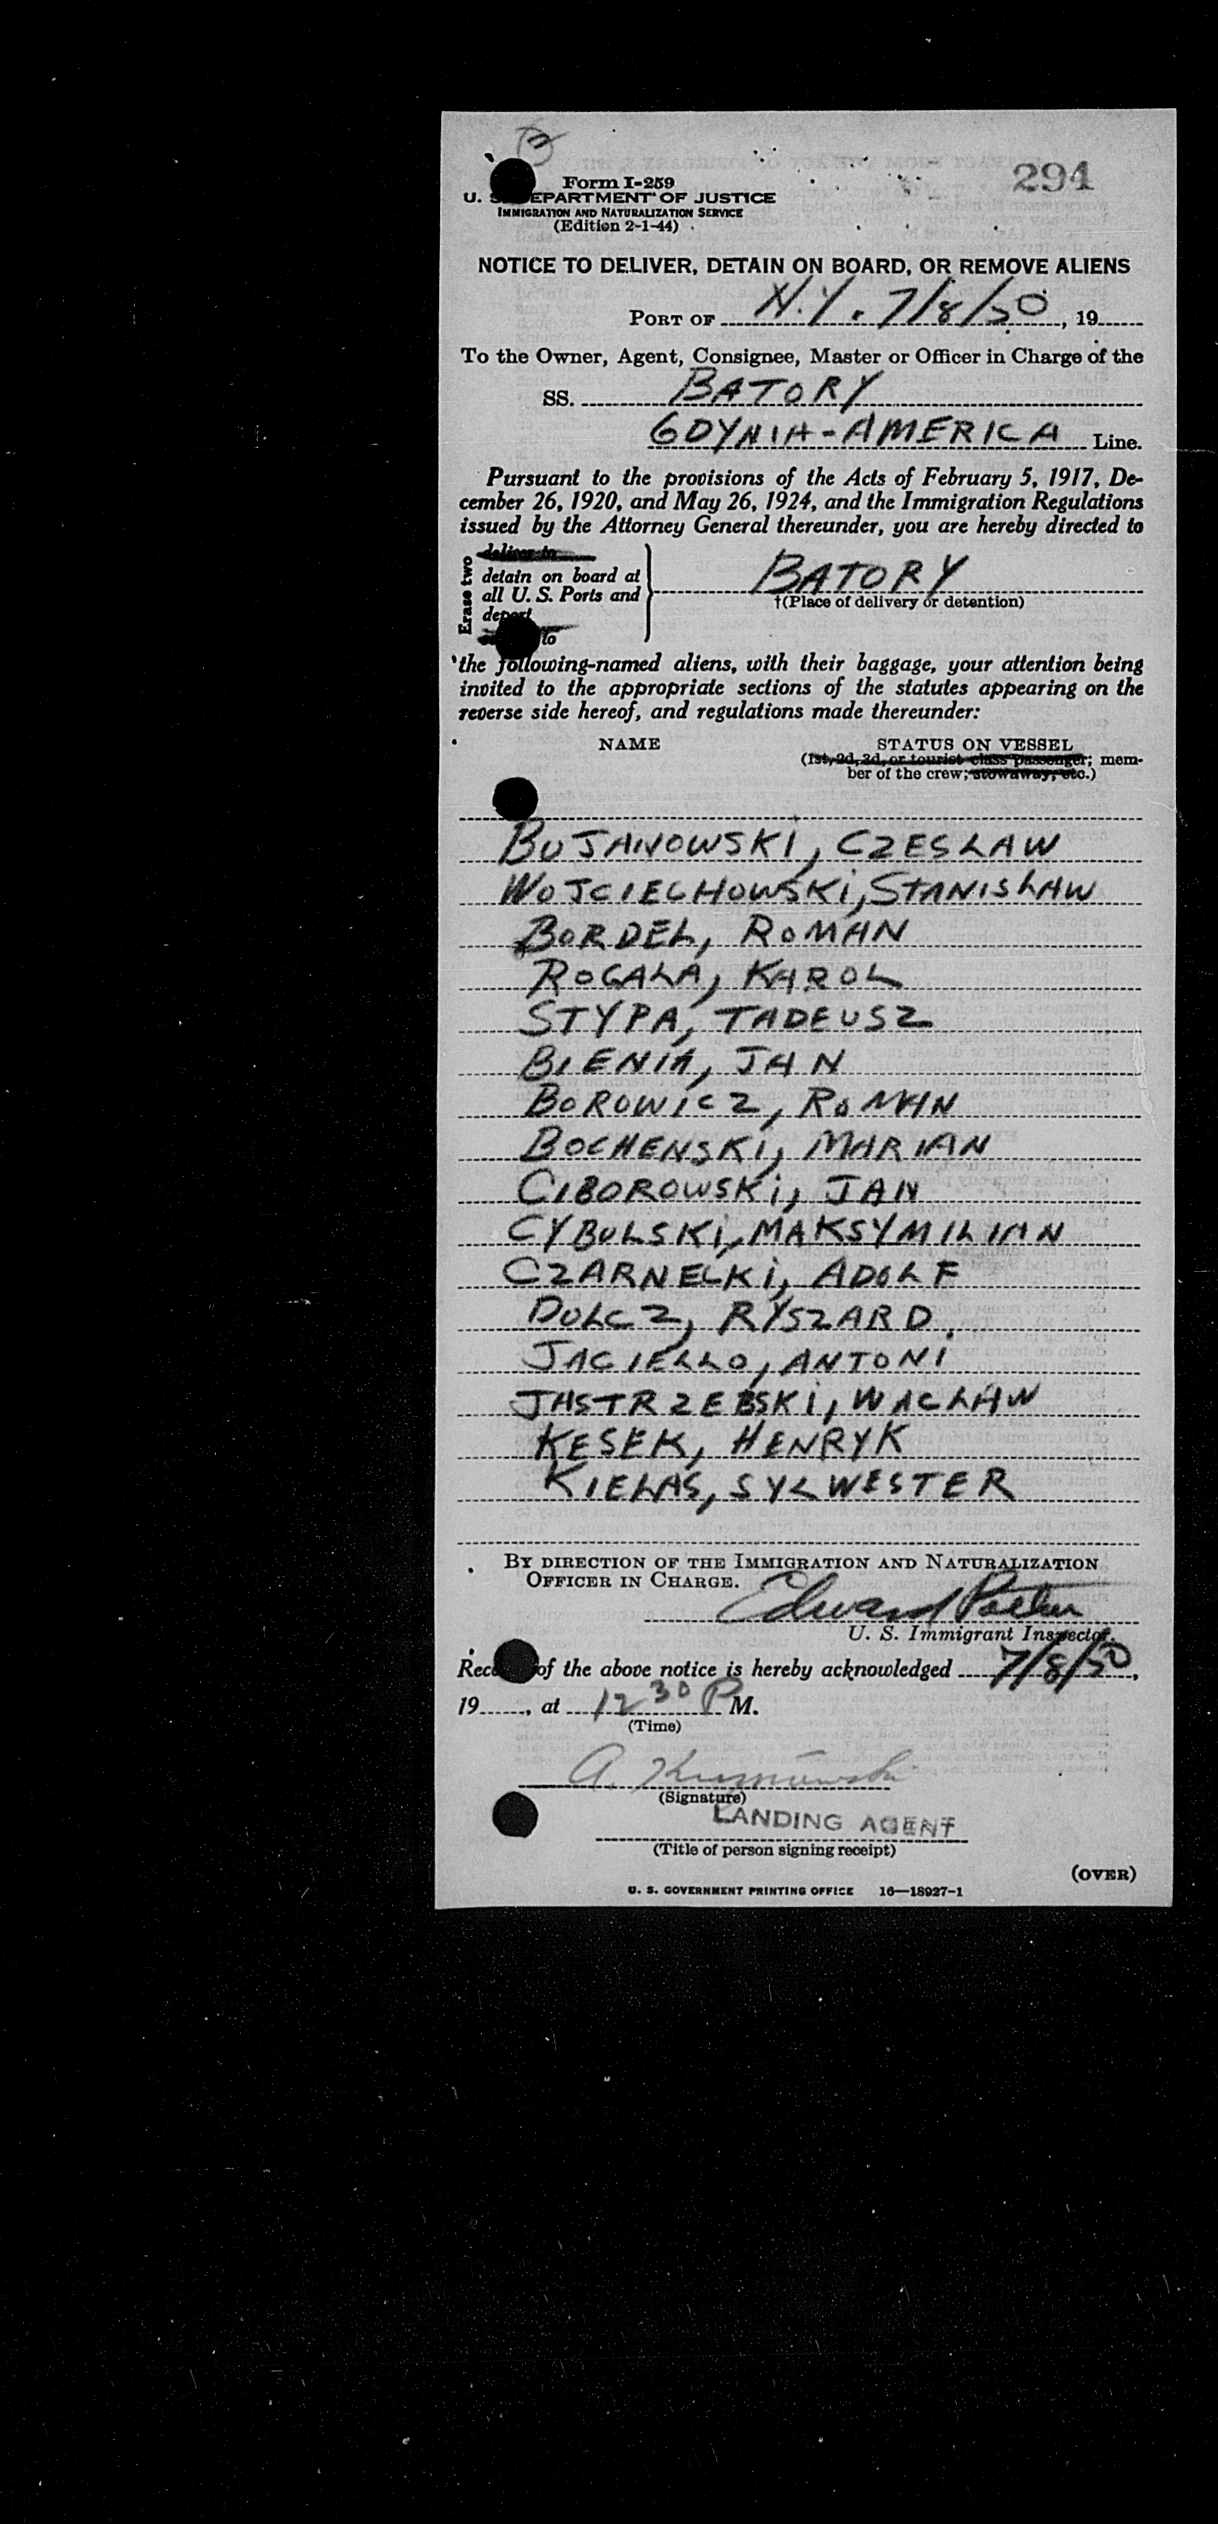 294
Form I-259
U. S. DEPARTMENT OF JUSTICE
IMMIGRATION AND NATURALIZATION SERVICE
(Edition 2-1-44)
NOTICE TO DELIVER, DETAIN ON BOARD, OR REMOVE ALIENS
PORT OF N.Y. 7/8/50, 19
To the Owner, Agent, Consignee, Master or Officer in Charge of the
SS. BATORY
GDYNIA-AMERICA Line.
Pursuant to the provisions of the Acts of February 5, 1917, De-
cember 26, 1920, and May 26, 1924, and the Immigration Regulations
issued by the Attorney General thereunder, you are hereby directed to
Erase two
deliver to
detain on board at
all U. S. Ports and
deport
to
BATORY
†(Place of delivery or detention)
the following-named aliens, with their baggage, your attention being
invited to the appropriate sections of the statutes appearing on the
reverse side hereof, and regulations made thereunder:
NAME STATUS ON VESSEL
(1st, 2d, 3d, or tourist class passenger; mem-
ber of the crew; stowaway, etc.)
BUJANOWSKI, CZESLAW
WOJCIECHOWSKI, STANISLAW
BORDEL, ROMAN
ROGALA, KAROL
STYPA, TADEUSZ
BIENIA, JAN
BOROWICZ, ROMAN
BOCHENSKI, MARIAN
CIBOROWSKI, JAN
CYBULSKI, MAKSYMILIAN
CZARNECKI, ADOLF
DULCZ, RYSZARD.
JACIELLO, ANTONI
JASTRZEBSKI, WACLAW
KESEK, HENRYK
KIELAS, SYLWESTER
BY DIRECTION OF THE IMMIGRATION AND NATURALIZATION
OFFICER IN CHARGE.
Edward
U. S. Immigrant Inspector.
of the above notice is hereby acknowledged 7/8/50,
19, at 12 30 P M.
(Time)
A.
(Signature)
LANDING AGENT
(Title of person signing receipt)
(OVER)
U. S. GOVERNMENT PRINTING OFFICE 16—18927-1